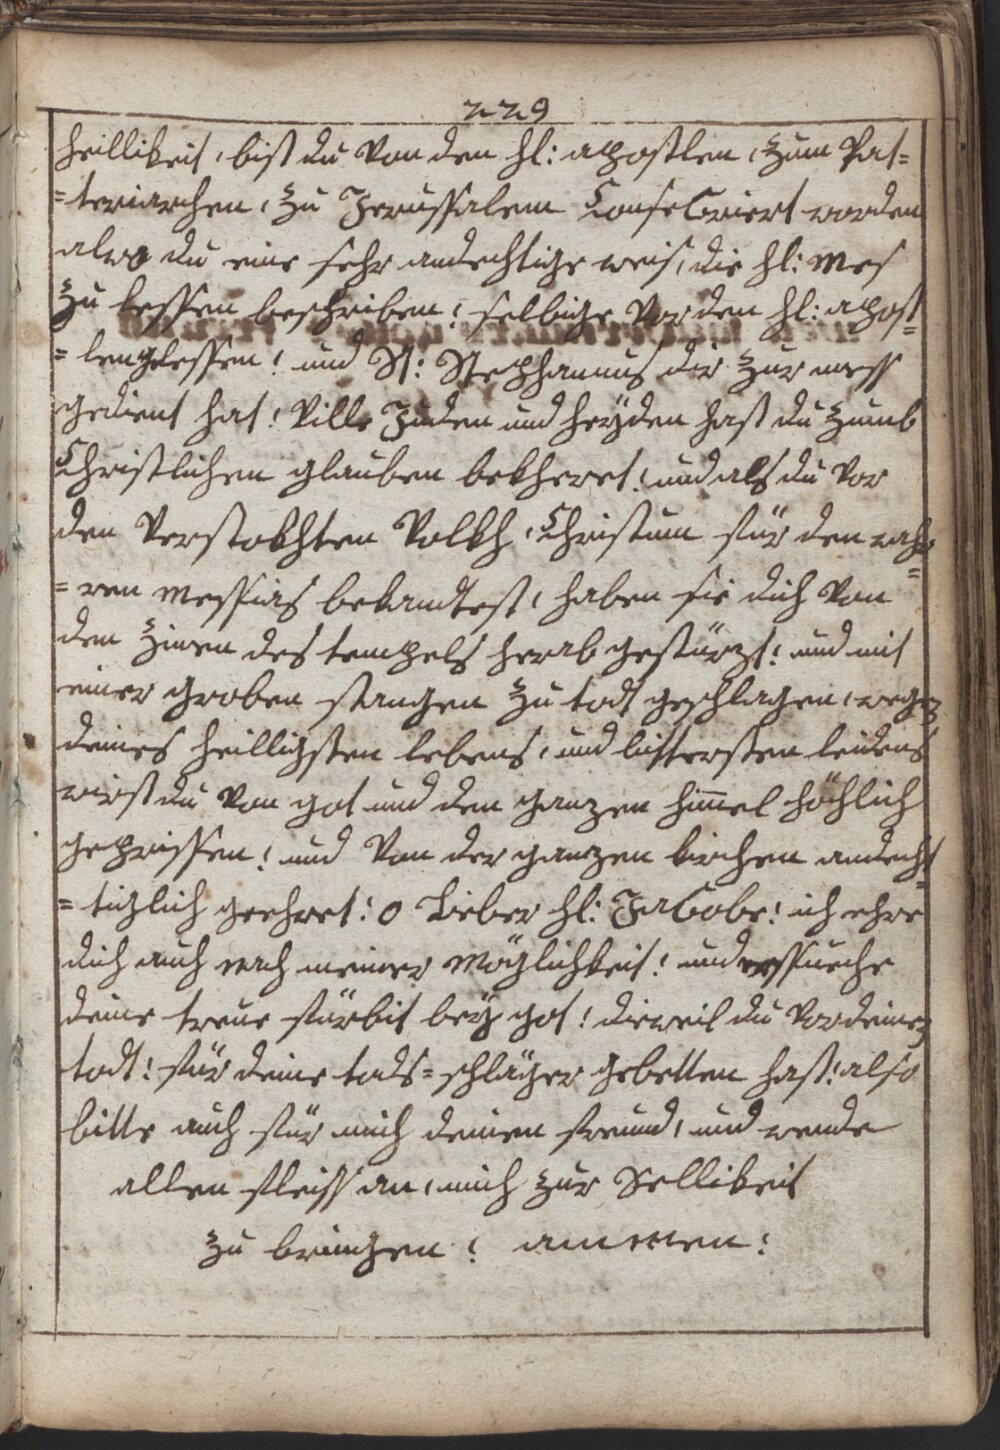 229
heillikeit, bist du von den hl: apostlen, zum Pat=
=teriarchen, zu Jerussalem Consecriert worden
alwo du eine sehr andechtige weis, die hl: Mes
zu lessen beschriben! selbige vor den hl: apost=
=len gelessen! und St: Stephannus dir zur mess
gedient hat! Ville Juden und heÿden hast du zumb
Christlichen glauben bekheret! und als du vor
den verstokhten Volkh, Christum für den wah=
=ren Messias bekandtest, haben sie dich von
den Zinen des tempels herab gestürzt! und mit
einer groben stangen zu todt geschlagen, wegen
deines heilligsten lebens, und bittersten leidens
wirst du von got und dem ganzen himel höchlich
geprissen! und von der ganzen kirchen andech=
=tiglich geehret! o Lieber hl: Jacobe! ich ehre
dich auch nach meiner möglichkeit! und ersueche
deine treue fürbit beÿ got! dieweil du vor deinen
todt! für deine tods=schläger gebetten hast! also
bitte auch für mich deinen freund, und wende
allen fleiss an, mich zur Sellikeit
zu bringen! ammen!